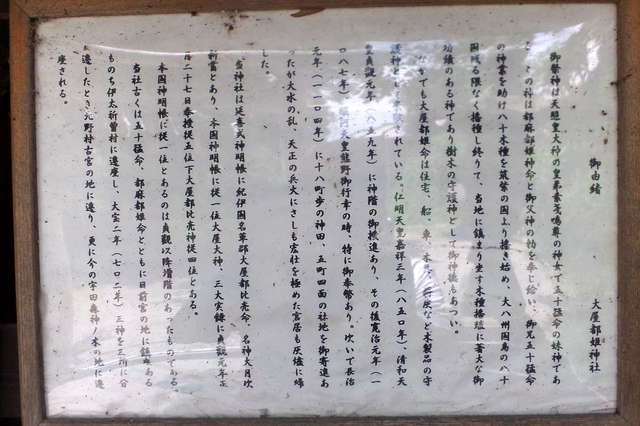 御由緒
大屋都姫神社
御祭神は天照皇大神の皇弟素戔嗚尊の神女で五十猛命の妹神であ
この神は都麻都姫神命と御父神の勅を奉じ給い、御兄五十猛命
の神業を助け八十木種を筑紫の国より播き始め、大八州国島の八十
国残る隈なく播種し終りて、当地に鎮まり坐す木種播殖に著大な御
功績のある神であり樹木の守護神として御神徳もあつい。
なかでも大屋都姫命は住宅、船、車、木 など木製品の守
護神として されている。仁明天皇嘉祥三年（八五〇年）清和天
皇貞観元年（八五九年）に神階の御撰進あり、その後寛治元年（一
〇八七年） 天皇熊野御行幸の時、特に御奉幣あり。次いで長治
元年（一一〇四年）に十八町歩の神田、五町四面の社地を御寄進あ
ったが大水の乱、天正の兵火にさしも宏壮を極めた宮居も灰燼に帰
した。
当神社は延喜式神明帳に紀伊国名草郡大屋都比売命、名神大月次
新嘗とあり、本国神明帳に従一位大屋大神、三大実録に貞観元年正
月二十七日奉授従五位下大屋都比売神従四位とある。
本国神明帳に従一位とあるのは貞観以降増階のあったものである。
当社古くは五十猛命、都麻都姫命とともに日前宮の地に鎮 ある
ものち伊太祈曽村に遷座し、大宝二年（七〇二年）三神を三所に分
遷したとき北野村古宮の地に遷り、更に今の宇田森神ノ木の地に遷
座される。